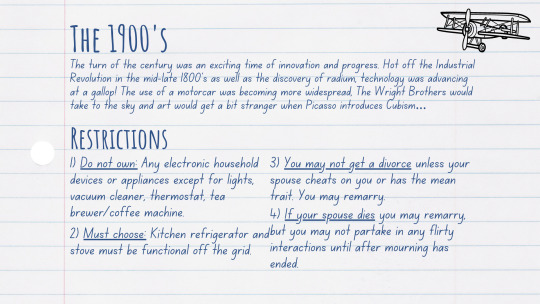 The 1900's
The turn of the century was an exciting time of innovation and progress. Hot off the Industrial
Revolution in the mid-late 1800's as well as the discovery of radium, technology was advancing
at a gallop! The use of a motorcar was becoming more widespread, The Wright Brothers would
take to the sky and art would get a bit stranger when Picasso introduces Cubism...
Restrictions
1) Do not own: Any electronic household
devices or appliances except for lights,
vacuum cleaner, thermostat, tea
brewer/coffee machine.
2) Must choose: Kitchen refrigerator and
stove must be functional off the grid.
3) You may not get a divorce unless your
spouse cheats on you or has the mean
trait. You may remarry.
4) If your spouse dies you may remarry,
but you may not partake in any flirty
interactions until after mourning has
ended.